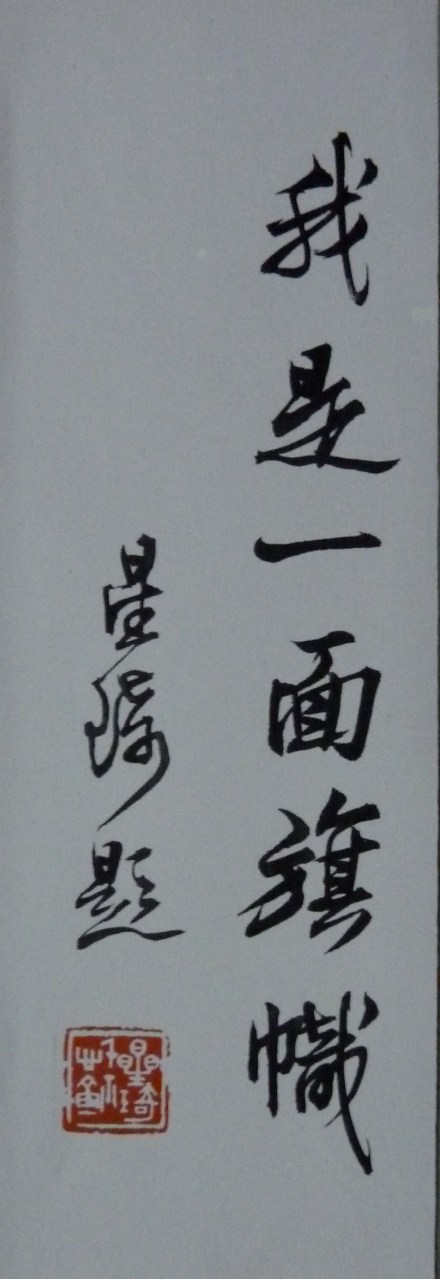 我是一面旗幟
星琦題